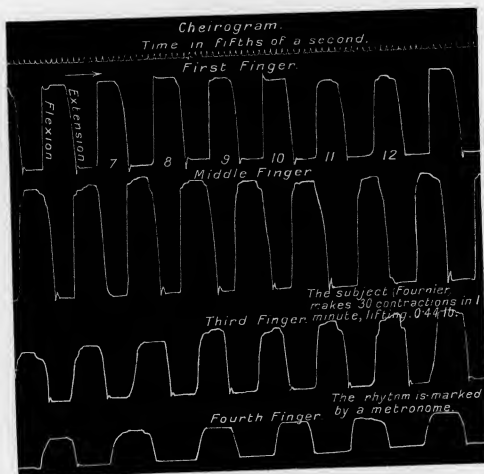 Cheirogram.
Time in fifths of a second.
First Finger.
Flexion
Extension
7 8 9 10 11 12
Middle Finger
The subject Fournier
makes 30 contractions in 1
minute, lifting 0.44 lb.
Third Finger
The rhythm is marked
by a metronome.
Fourth Finger